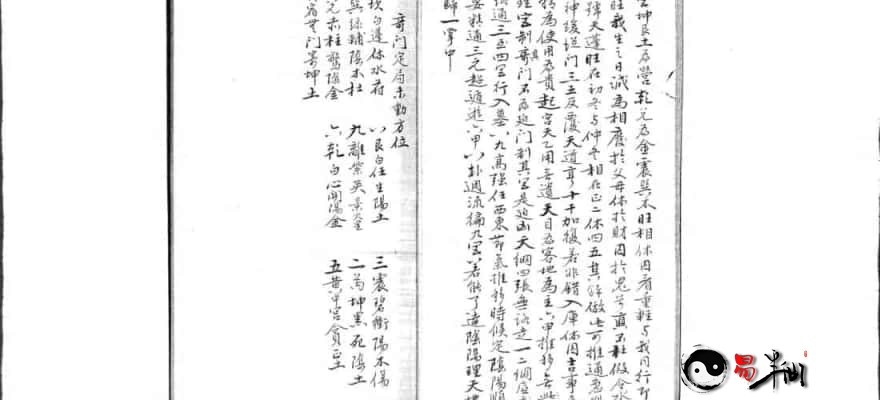 坤艮土為營乾兌為金震巽木旺相休囚看重輕与我同行即
旺我生之日誠為相廢於父母休於財囚於鬼兮真不杜假令水
號天蓬旺在初冬与仲冬相在正二休四五其餘倣此可推通急則
神緩從門三五反覆天道亨十干加復若非錯入庫休囚吉事
精為使用為貴起宮天乙用無遺天目為客地為主六甲推移無
理宮制其奇門不為迫門制其宮是迫凶天網四張無路走一二網
通三至四宮行入墓八九高强任西東節氣推移時候定陰陽順
要精通三元超遁遊六甲八卦週流徧九宮若能了達陰陽理天地
歸一掌中
奇門定局未動方位
坎白蓬休水
巽綠輔陰木杜
兌赤柱驚陰金
宿無門寄坤土
八艮白任生陽土
九離紫英景火
六乾白心開陽金
三震碧衝陽木傷
二坤黑死陰土
五黃中宮禽正土
易半仙